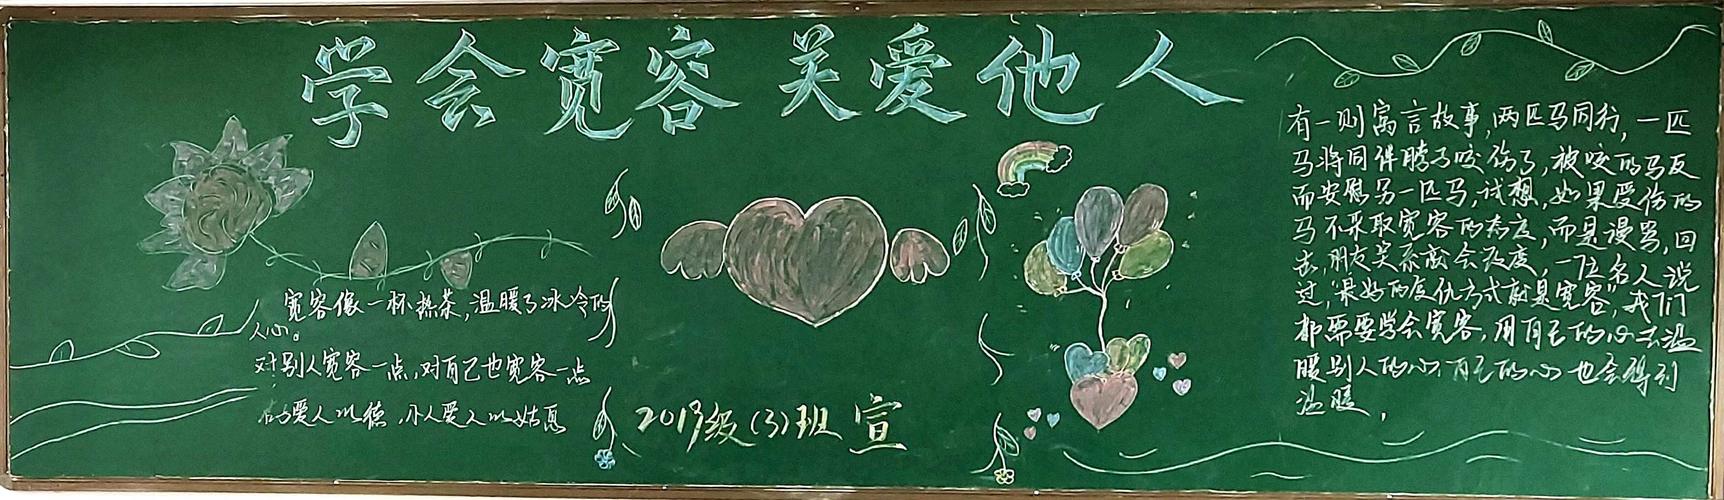 学会宽容 关爱他人
宽容像一杯热茶,温暖了冰冷的
人心。
对别人宽容一点,对自己也宽容一点
爱人以德,小人爱人以姑息
2019级(3)班 宣
有一则寓言故事,两匹马同行,一匹
马将同伴脖子咬伤了,被咬的马反
而安慰另一匹马,试想,如果受伤的
马不采取宽容的态度,而是谩骂,回
击,朋友关系就会,一位名人说
过,“最好的复仇方式就是宽容”,我们
都需要学会宽容,用自己的心去温
暖别人的心,自己的心也会得到
温暖,